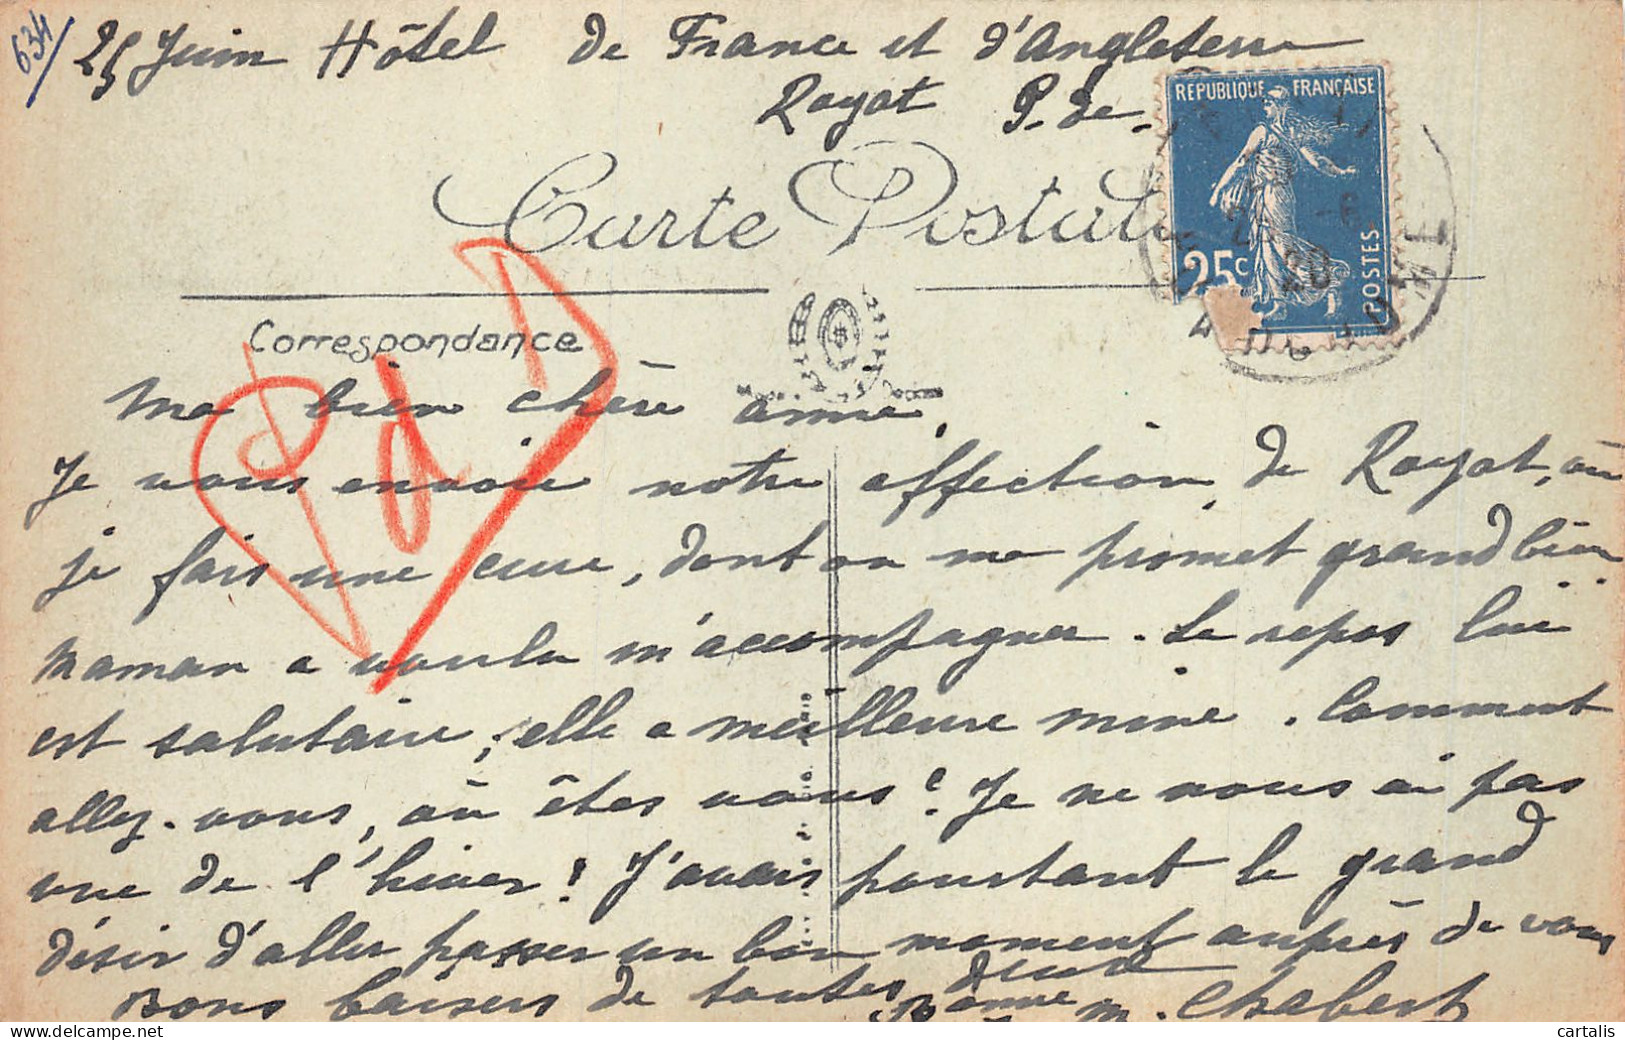 634
25 Juin Hôtel de France et d'Angleterre
Royat P. de
REPUBLIQUE FRANÇAISE
25c
POSTES
Carte Postale
Correspondance
PdD
Ma bien chère anne,
Je vous envoie notre affection, de Royat, où
je fais une cure, dont on me promet grand bien.
Maman a voulu m'accompagner. Le repos lui
est salutaire, elle a meilleure mine. Comment
allez-vous, où êtes vous? Je ne vous ai pas
vue de l'hiver! J'avais pourtant le grand
désir d'aller passer un bon moment auprès de vous
Bons baisers de toutes deux
M. Chabert
cartalis